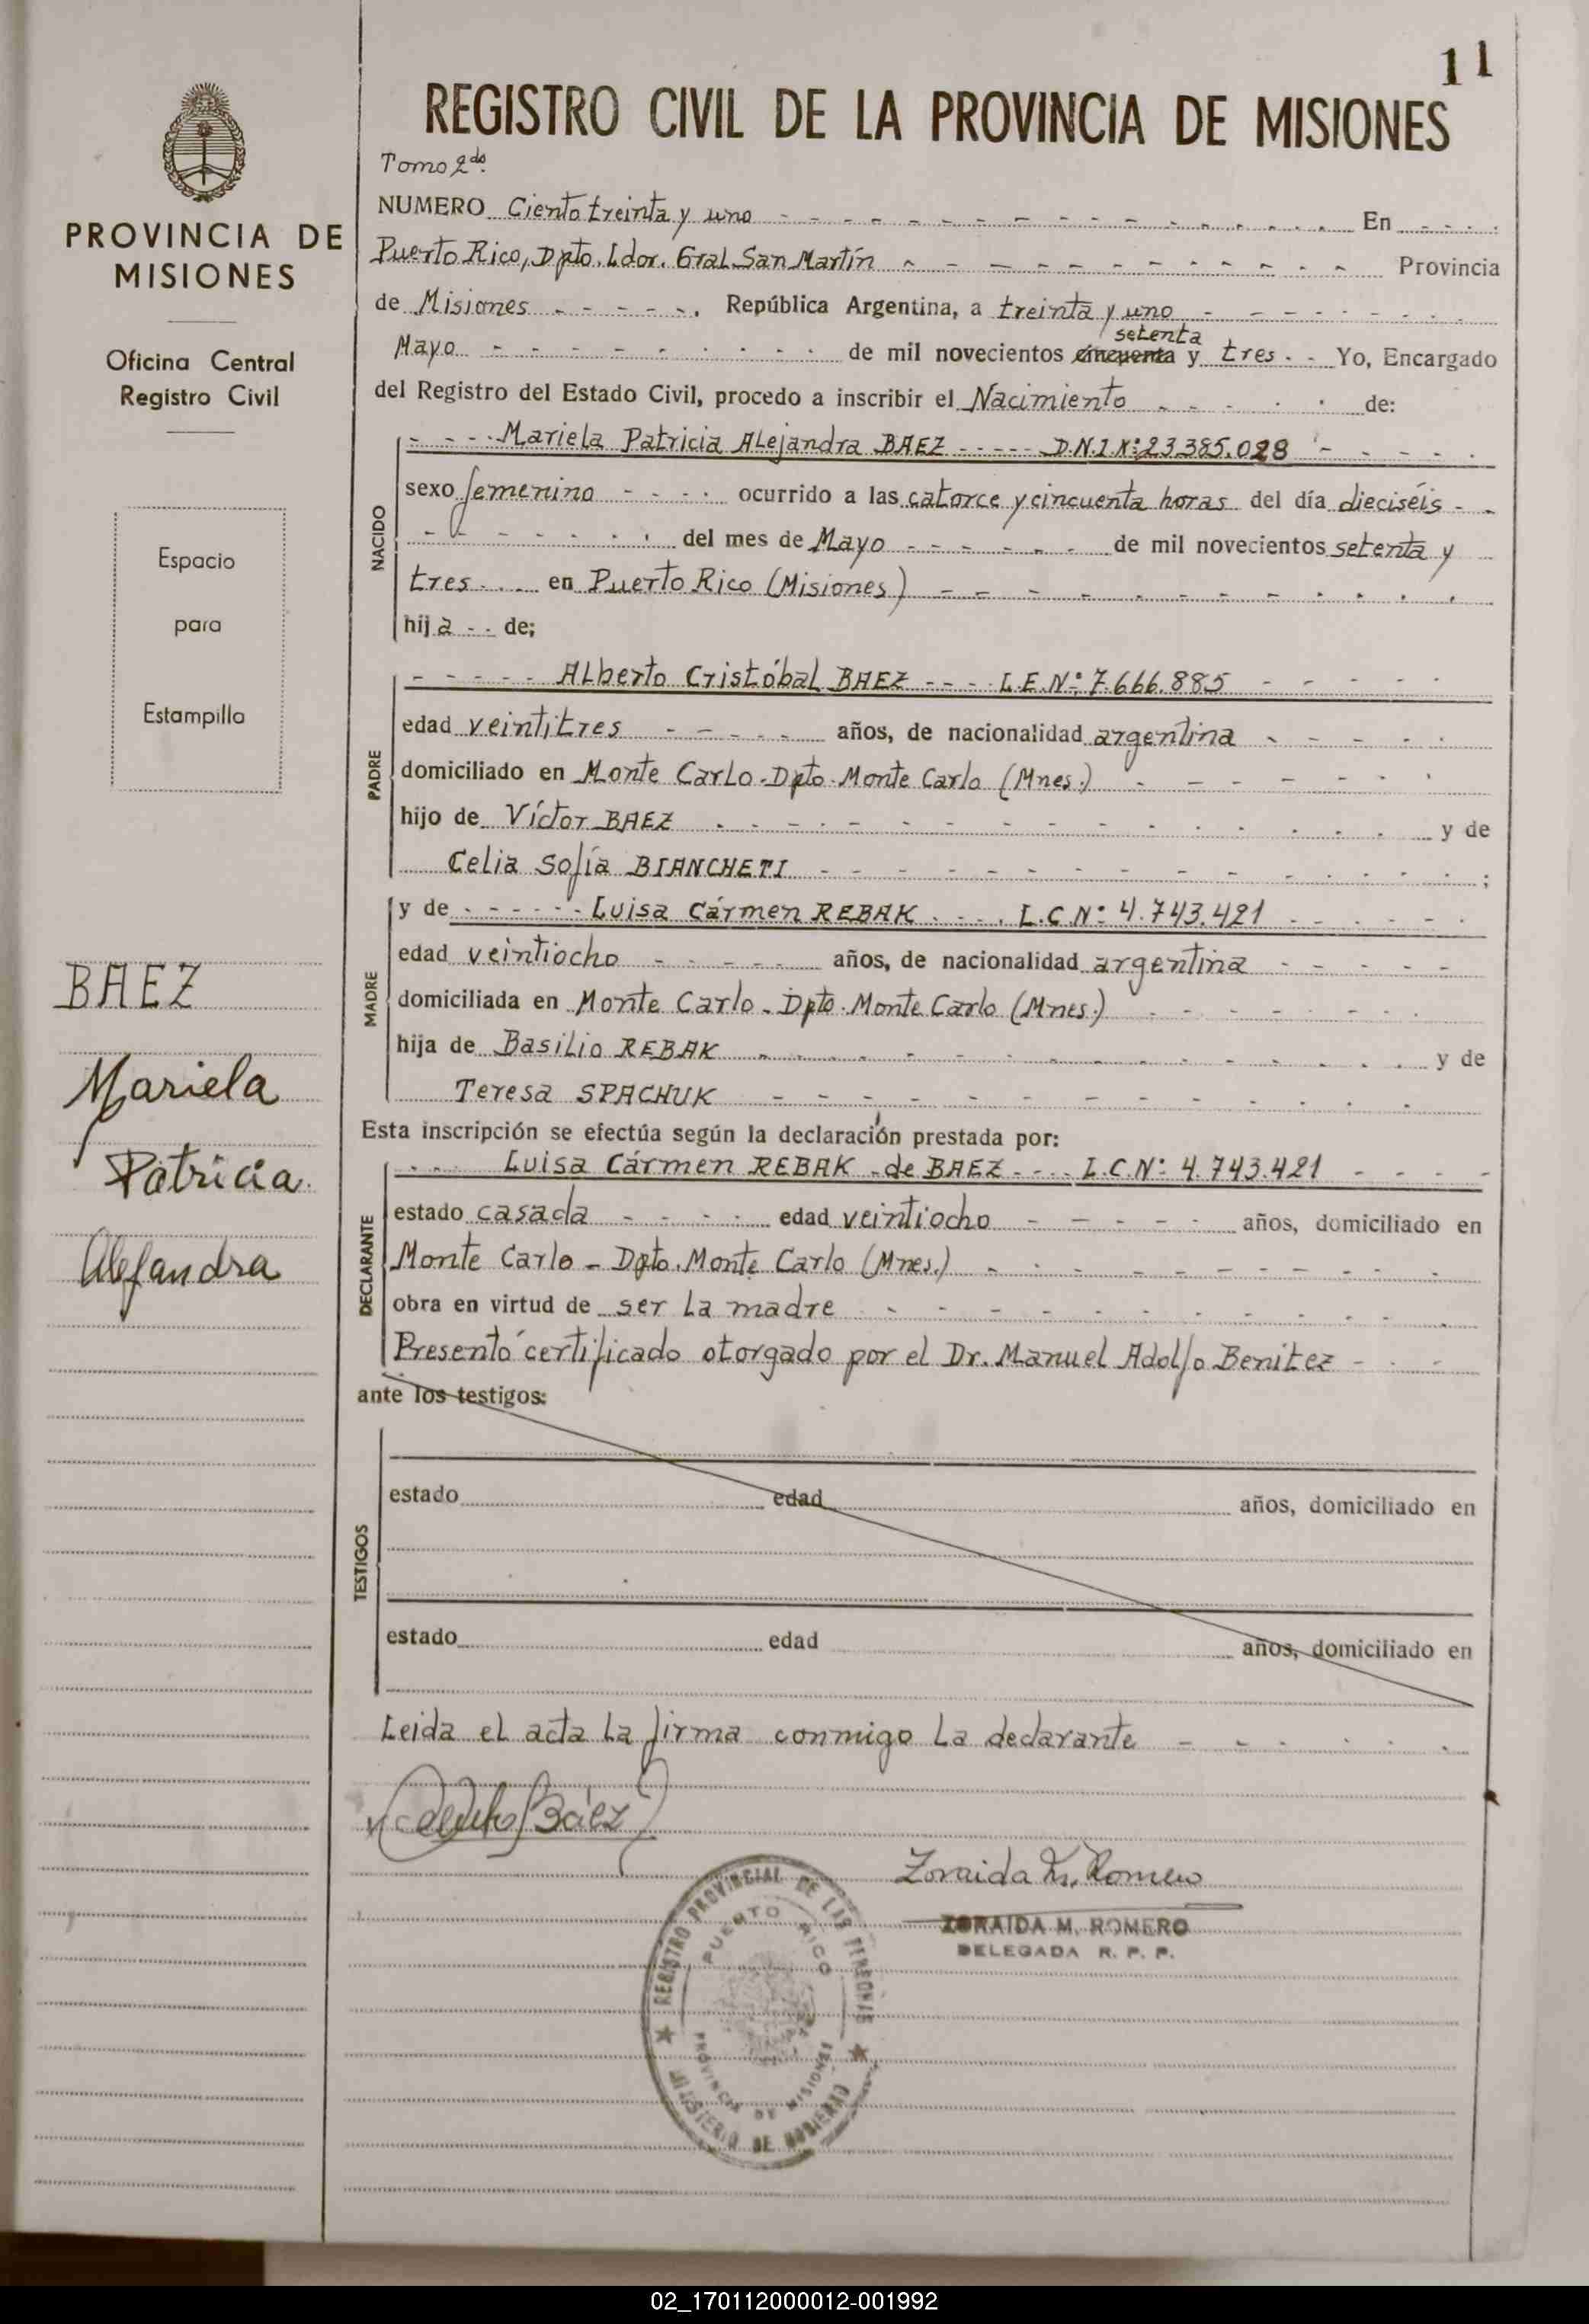 11
REGISTRO CIVIL DE LA PROVINCIA DE MISIONES
PROVINCIA DE
MISIONES
Oficina Central
Registro Civil
Espacio
para
Estampilla
BAEZ
Mariela
Patricia
Alejandra
Tomo 2do.
NUMERO Ciento treinta y uno En
Puerto Rico, Dpto. Ldor. Gral. San Martín Provincia
de Misiones, República Argentina, a treinta y uno
setenta
Mayo de mil novecientos cincuenta y tres Yo, Encargado
del Registro del Estado Civil, procedo a inscribir el Nacimiento de:
NACIDO
Mariela Patricia Alejandra BAEZ D.N.I.Nº: 23.385.028
sexo femenino ocurrido a las catorce y cincuenta horas del día dieciséis
del mes de Mayo de mil novecientos setenta y
tres en Puerto Rico (Misiones)
hija de;
PADRE
Alberto Cristóbal BAEZ L.E.Nº: 7.666.885
edad veintitres años, de nacionalidad argentina
domiciliado en Monte Carlo - Dpto. Monte Carlo (Mnes.)
hijo de Víctor BAEZ y de
Celia Sofía BIANCHETI ;
MADRE
y de Luisa Cármen REBAK L.C.Nº: 4.743.421
edad veintiocho años, de nacionalidad argentina
domiciliada en Monte Carlo - Dpto. Monte Carlo (Mnes.)
hija de Basilio REBAK y de
Teresa SPACHUK
Esta inscripción se efectúa según la declaración prestada por:
DECLARANTE
Luisa Cármen REBAK de BAEZ L.C.Nº: 4.743.421
estado casada edad veintiocho años, domiciliado en
Monte Carlo - Dpto. Monte Carlo (Mnes.)
obra en virtud de ser la madre
Presentó certificado otorgado por el Dr. Manuel Adolfo Benitez
ante los testigos:
TESTIGOS
estado edad años, domiciliado en
estado edad años, domiciliado en
Leida el acta la firma conmigo la declarante
Báez
Zoraida M. Romero
ZORAIDA M. ROMERO
DELEGADA R. P. P.
REGISTRO PROVINCIAL DE LAS PERSONAS
PUERTO RICO
PROVINCIA DE MISIONES
MINISTERIO DE GOBIERNO
02_170112000012-001992